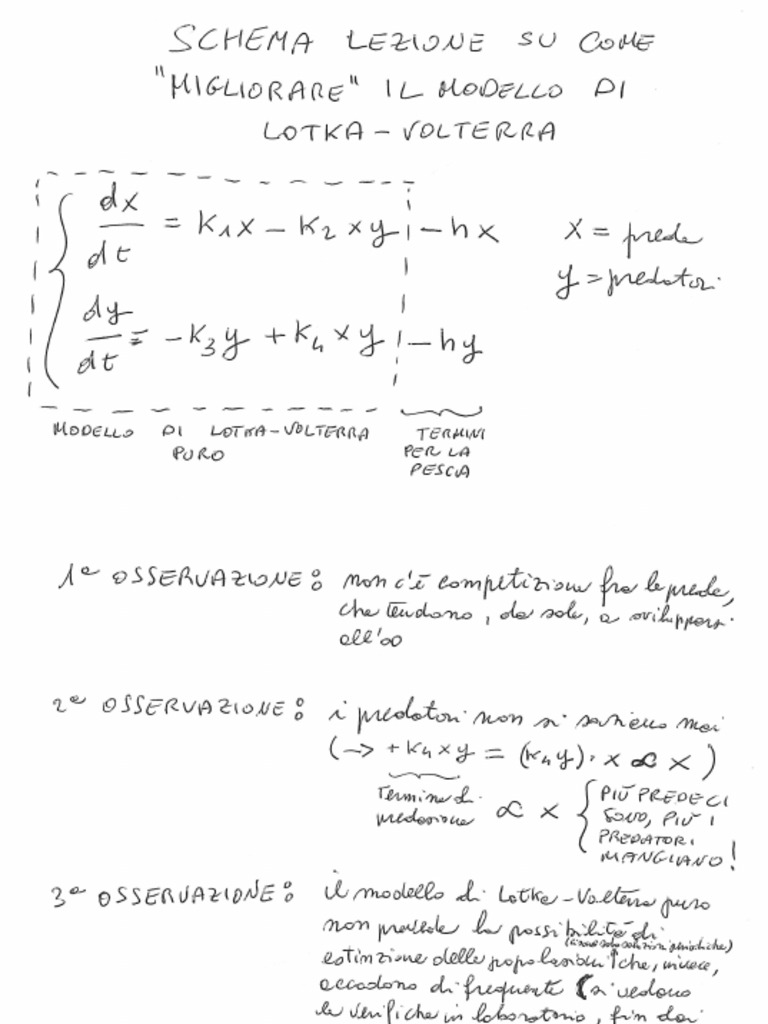 SCHEMA LEZIONE SU COME
"MIGLIORARE" IL MODELLO DI
LOTKA-VOLTERRA
dx/dt = K₁x - K₂xy - hx
x = prede
y = predatori
dy/dt = -K₃y + K₄xy - hy
MODELLO DI LOTKA-VOLTERRA
PURO
TERMINI
PER LA
PESCA
1ª OSSERVAZIONE: non c'è competizione fra le prede,
che tendono, da sole, a svilupparsi
all'∞
2ª OSSERVAZIONE: i predatori non si saziano mai
(→ +K₄xy = (K₄y)·x ∝ x)
termine di
predazione
∝ x
PIÙ PREDE CI
SONO, PIÙ I
PREDATORI
MANGIANO!
3ª OSSERVAZIONE: il modello di Lotka-Volterra puro
non prevede la possibilità di
(ci sono solo soluzioni periodiche)
estinzione delle popolazioni che, invece,
accadono di frequente (si vedono
le verifiche in laboratorio, fin dai